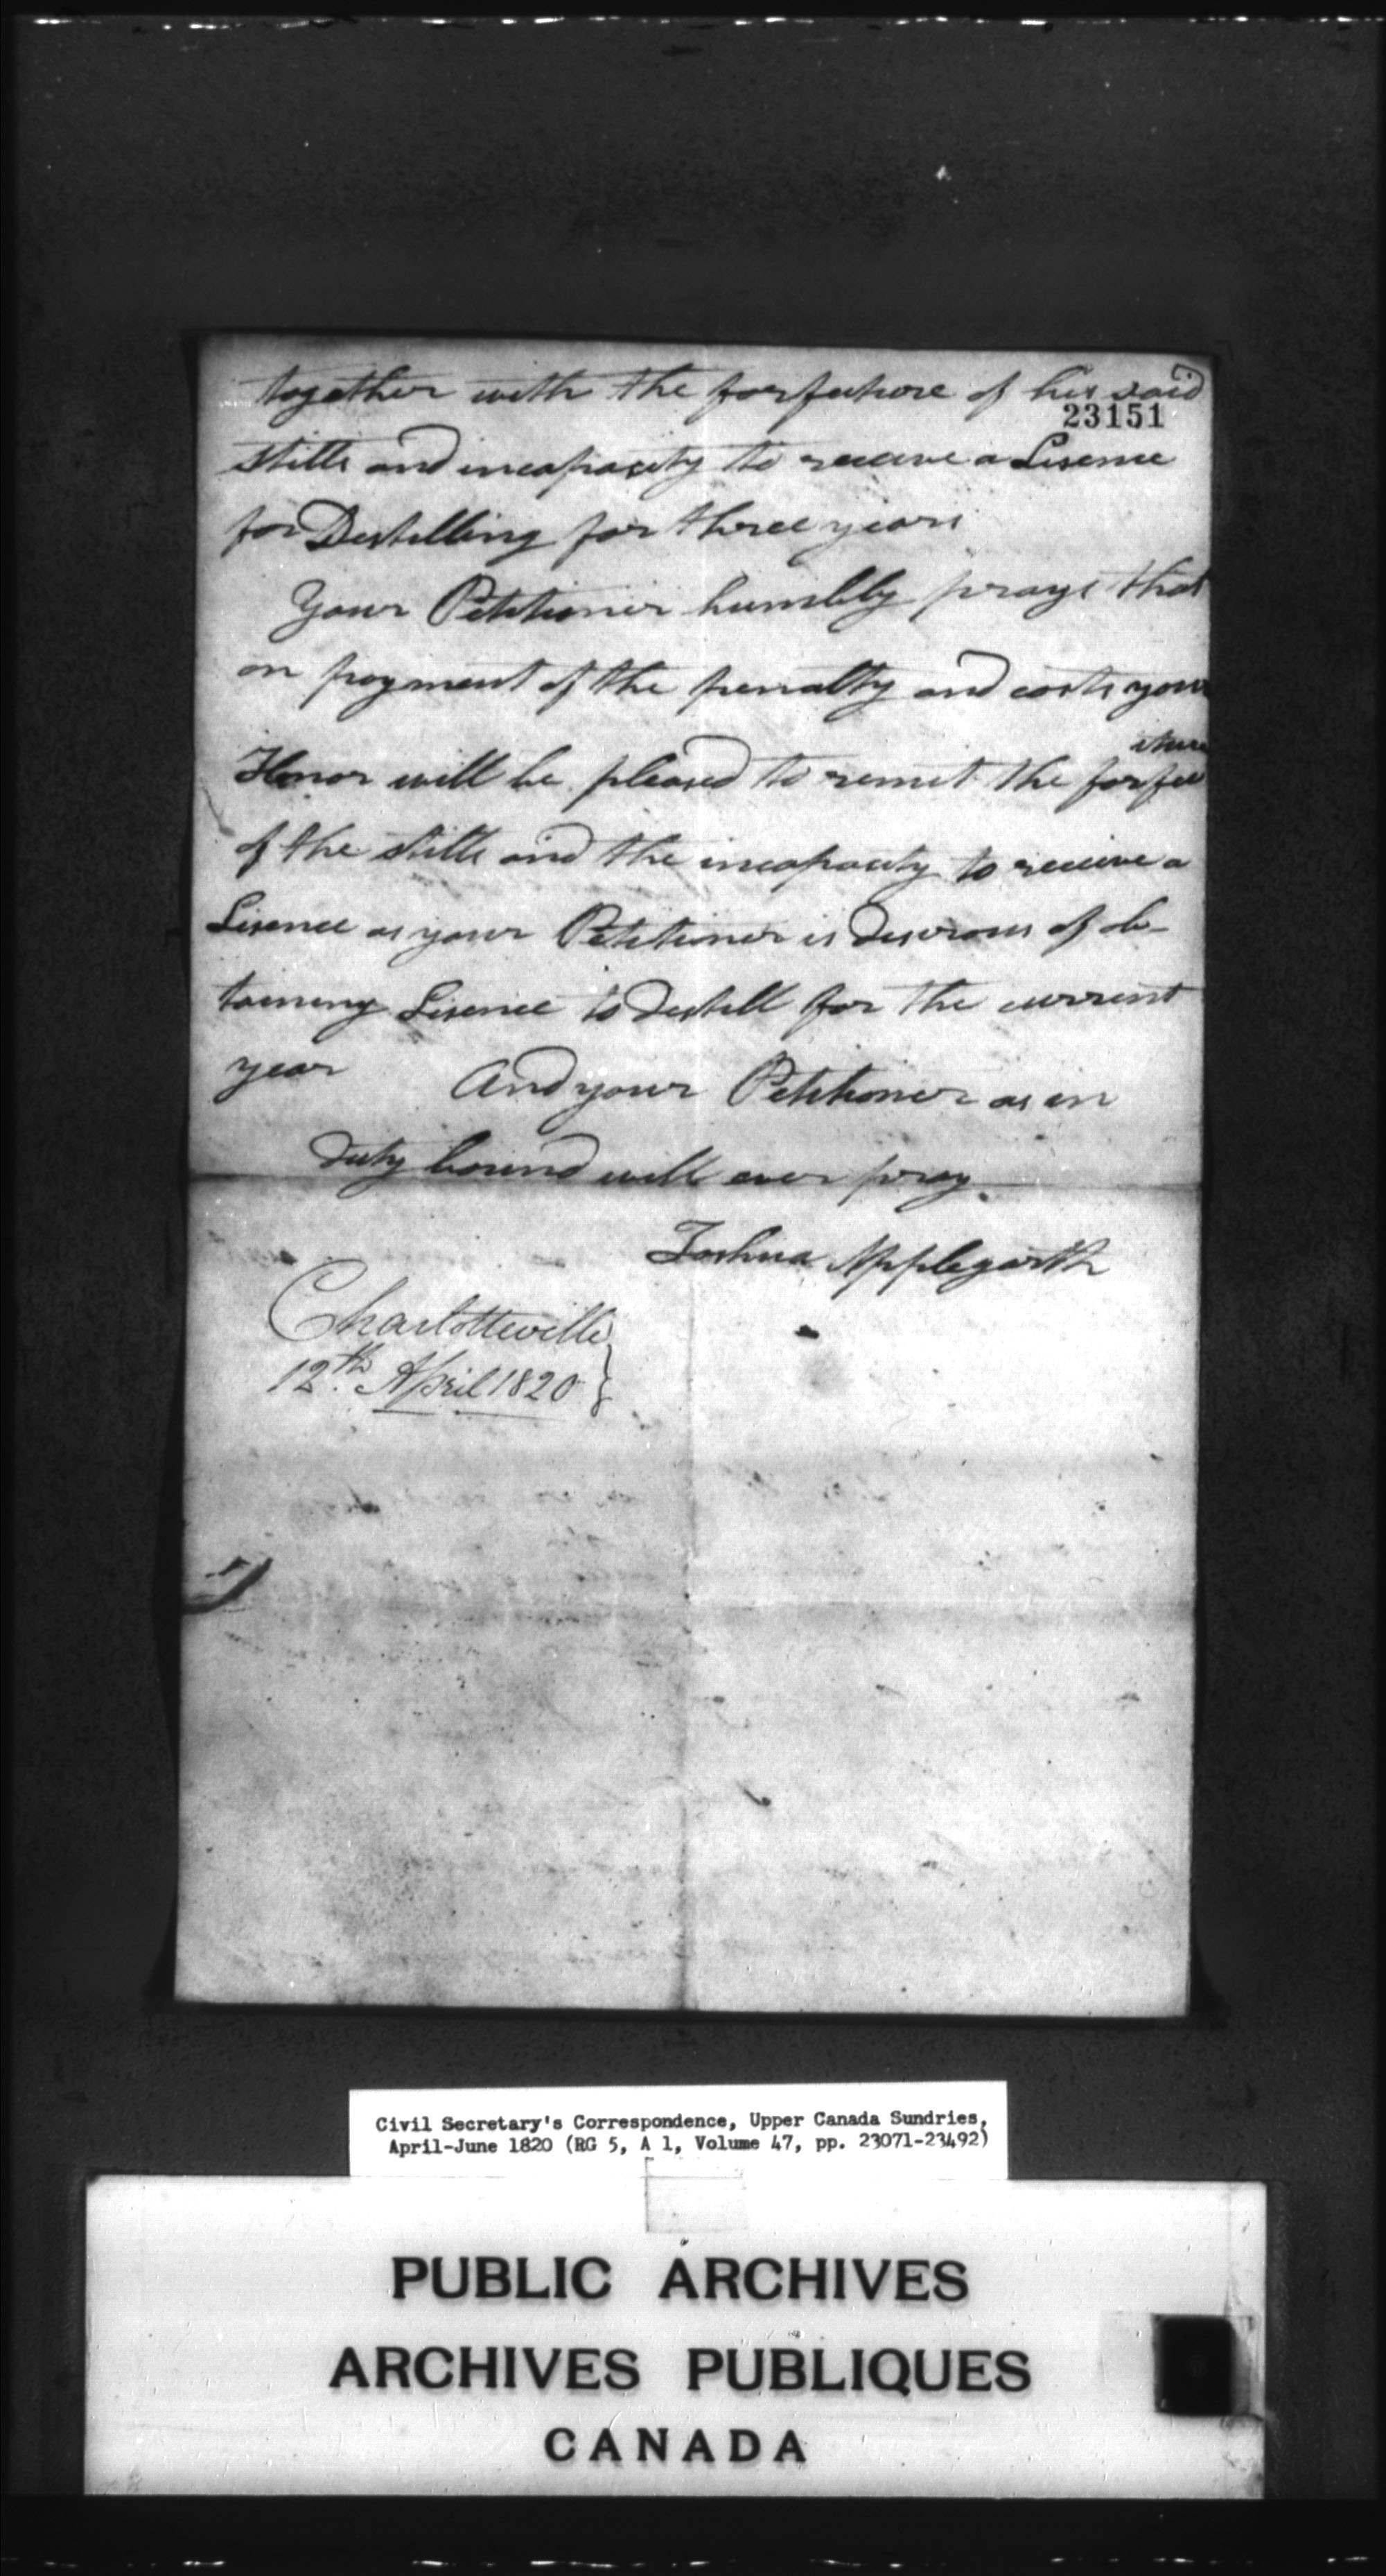 together with the forfeiture of his said
23151
stills and incapacity to receive a Lisence
for Destilling for three years
Your Petitioner humbly prays that
on payment of the penalty and costs your
Honor will be pleased to remit the forfeiture
of the stills and the incapacity to receive a
Lisence as your Petitioner is desirous of ob-
taining Lisence to destill for the current
year And your Petitioner as in
duty bound will ever pray
Joshua Applegarth
Charlotteville
12th. April 1820
Civil Secretary's Correspondence, Upper Canada Sundries,
April-June 1820 (RG 5, A 1, Volume 47, pp. 23071-23492)
PUBLIC ARCHIVES
ARCHIVES PUBLIQUES
CANADA